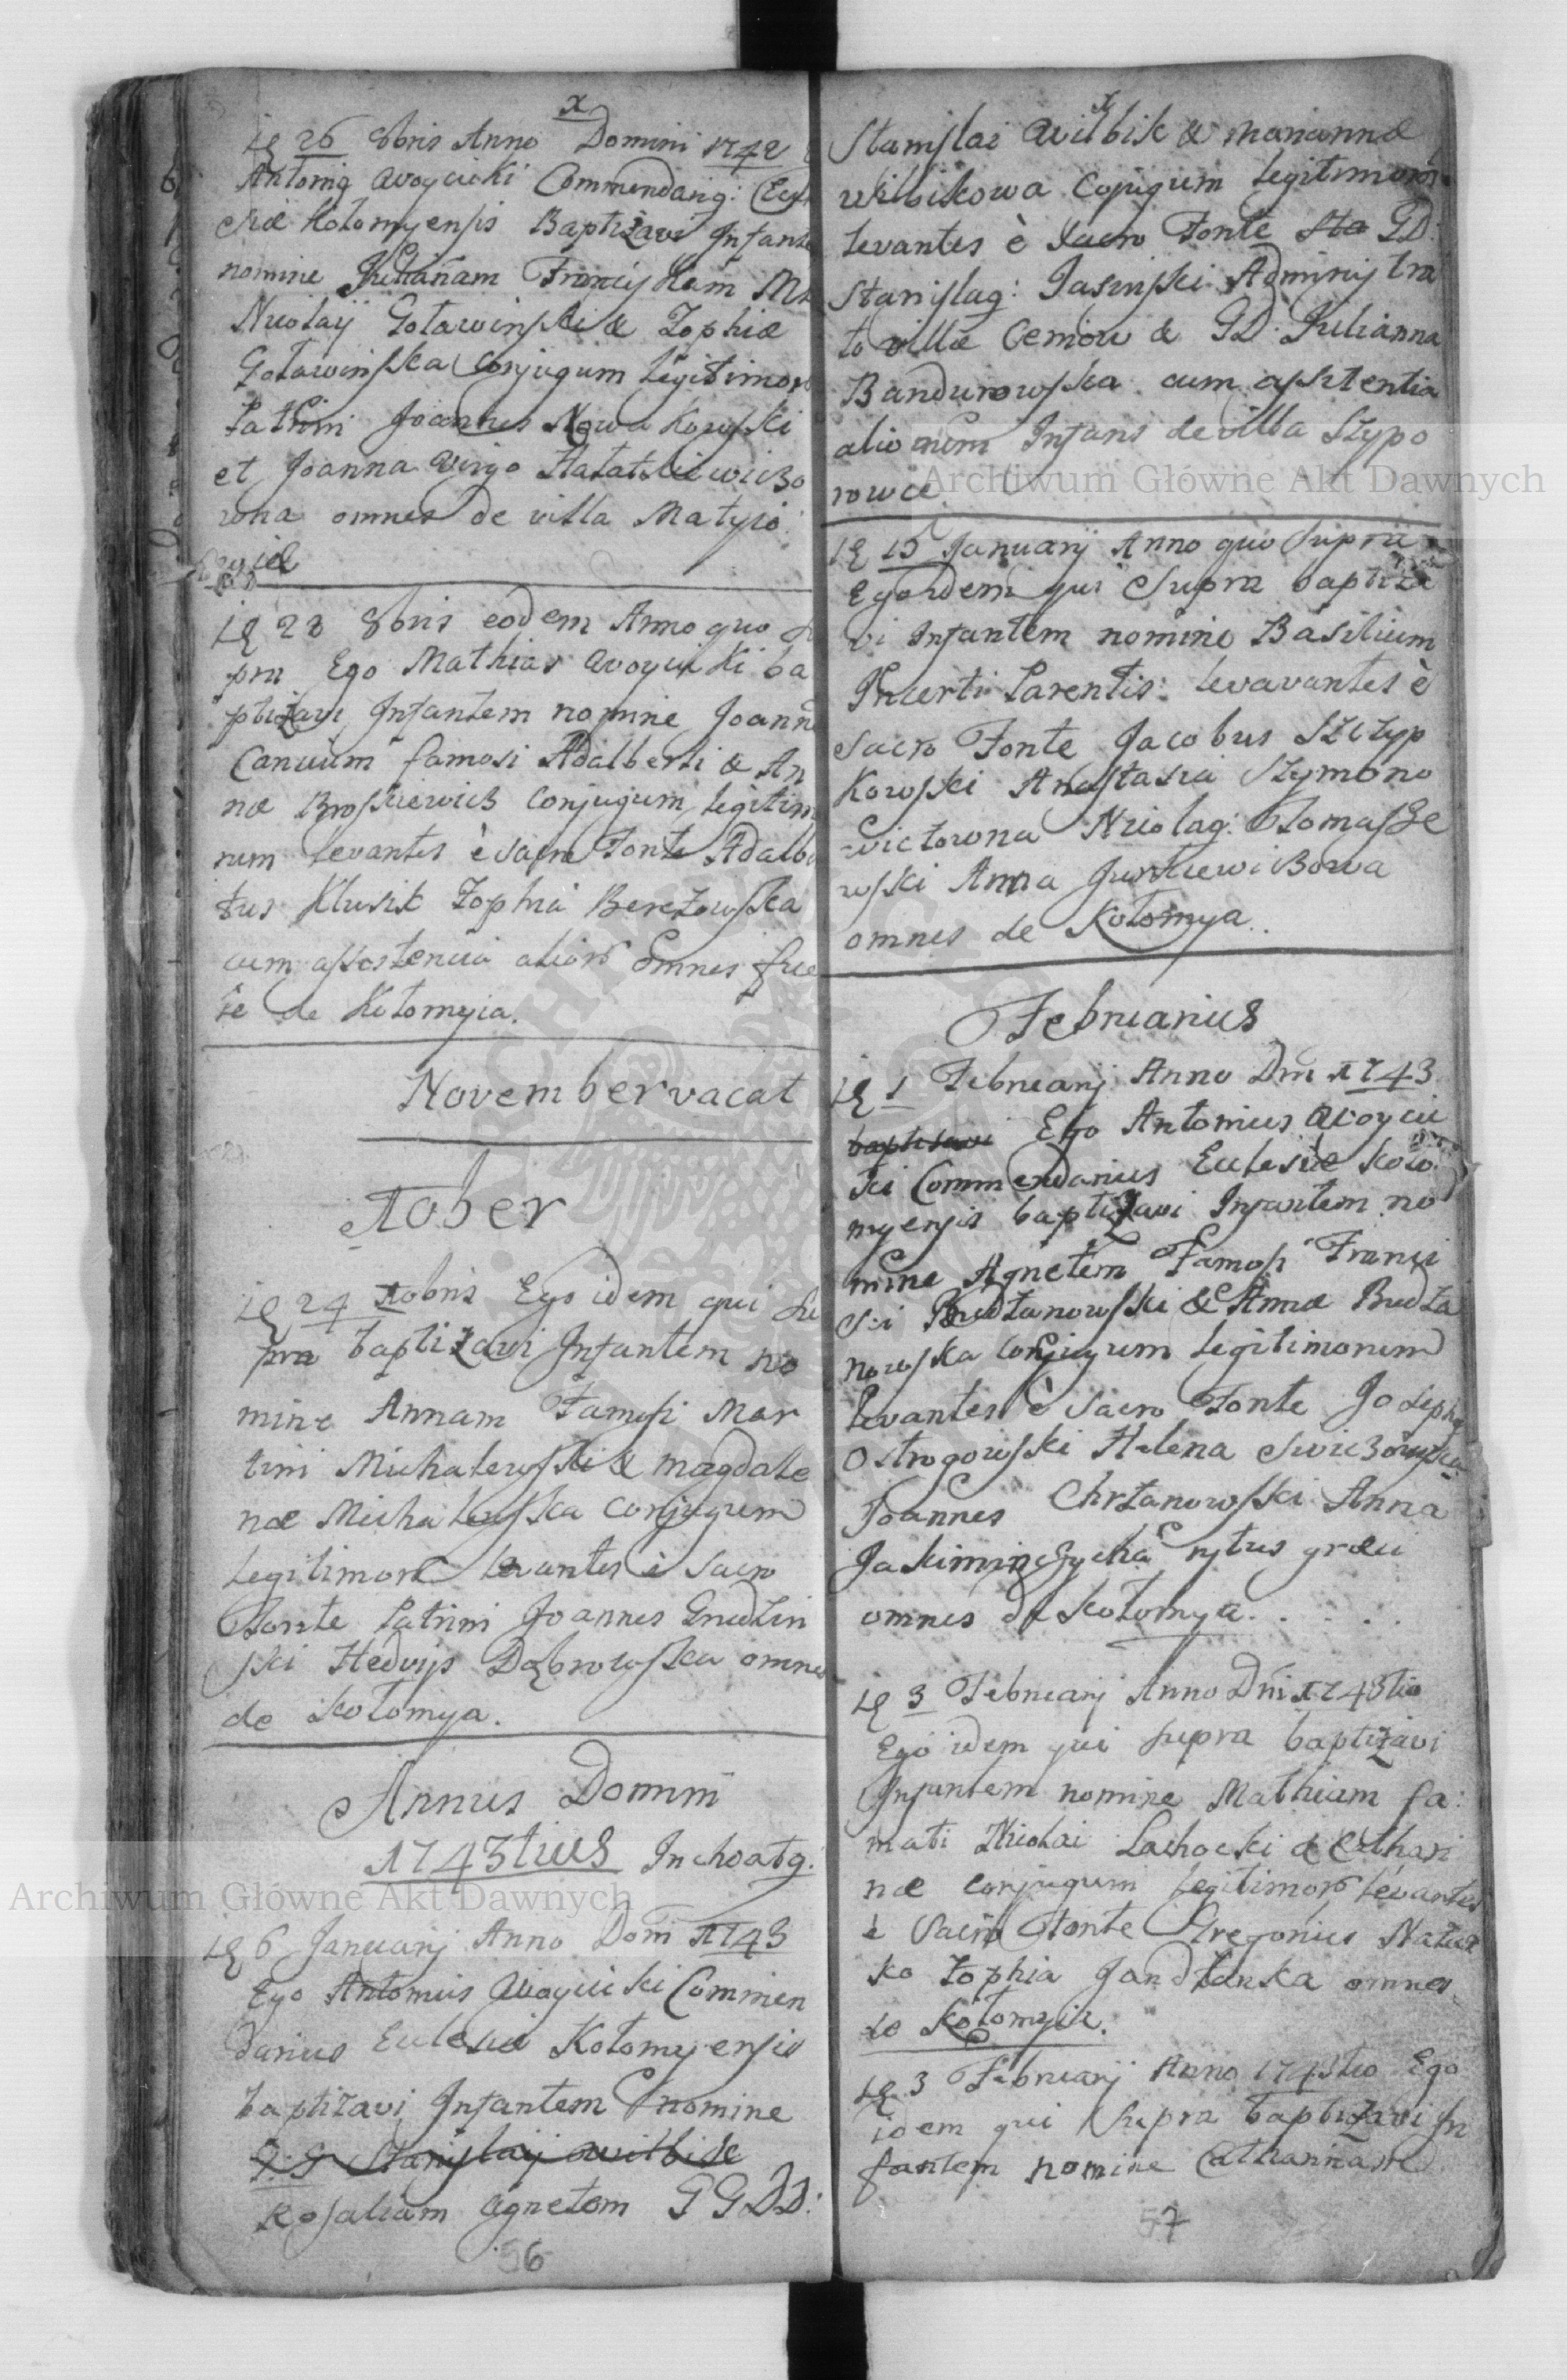 x
26 8bris Anno Domini 1742
Antonig Woycicki Commendarig: Eccle
siæ Kołomyensis Baptizavi Infante
nomine Juliannam Franciskam
Nicolaij Goławinski & Zophiæ
Goławinska Conjugum Legitimor
Patrini Joannes Nowakowski
et Joanna Virgo
wna omnes de villa Matyio
28 8bris eodem Anno quo su
pra Ego Mathias Woycicki ba
ptizavi Infantem nomine Joann
Cancium famosi Adalberti & An
næ Broskiewicz Conjugum Legitim
rum Levantes è sacro Fonte Adalb
tus Klusik Zophia Berezowska
cum assistencia alior omnes fue
re de Kołomyia.
November vacat
Xober
24 Xobris Ego idem qui su
pra baptizavi Infantem no
mine Annam Famosi Mar
tini Michalewski & Magdale
næ Michalewska Conjugum
Legitimor Levantes è Sacro
Fonte Patrini Joannes Grudzin
ski Hedvigs Dąbrowska omnes
de Kołomya.
Annus Domini
1743tius Inchoatg.
6 Januarij Anno Domi 1743
Ego Antonius Woycicki Commen
darius Eclesiæ Kołomyensis
baptizavi Infantem nomine
Stanislaij Wilbik
Rosaliam Agnetem G G D D:
56
x
Stanislai Wilbik & Mariannæ
Wilbikowa Cojugum Legitimor
Levantes è Sacro Fonte Sta GD:
Stanislag: Jasinski Administra
to villæ Ceniow & GD: Julianna
Bandurowska cum assitentia
aliorum Infans de villa Szypo
rowce
15 Januarij Anno quo supra
Ego idem qui supra baptiza
vi Infantem nomine Basilium
Incerti Parentis: Levavantes è
Sacro Fonte Jacobus Szczyp
kowski Anastasia Szymono
wictowna Nicolag: Tomasze
wski Anna Jurkiewiczowa
omnes de Kołomya.
Februarius
1 Februarij Anno Dni 1743
baptisavi Ego Antonius Woycic
ki Commendarius Eclesiæ Koło
myensis baptizavi Infantem no
mine Agnetem Famosi Franci
sci Budzanowski & Annæ Budza
nowska Conjugum Legitimorum
Levantes è Sacro Fonte Joseph
Ostrogowski Helena
Joannes Chrzanowski Anna
rytus græci
omnes de Kołomya.
3 Februarij Anno Dni 1743tio
Ego idem qui supra baptizavi
Infantem nomine Mathiam fa:
mati Nicolai Lachocki & Cathari
næ Conjugum Legitimor Levantes
è Sacro Fonte Gregorius
ko Zophia omnes
de Kołomyia.
3 Februarij Anno 1743tio Ego
idem qui supra baptizavi In
fantem nomine Catharinam
57
Archiwum Główne Akt Dawnych
Archiwum Główne Akt Dawnych